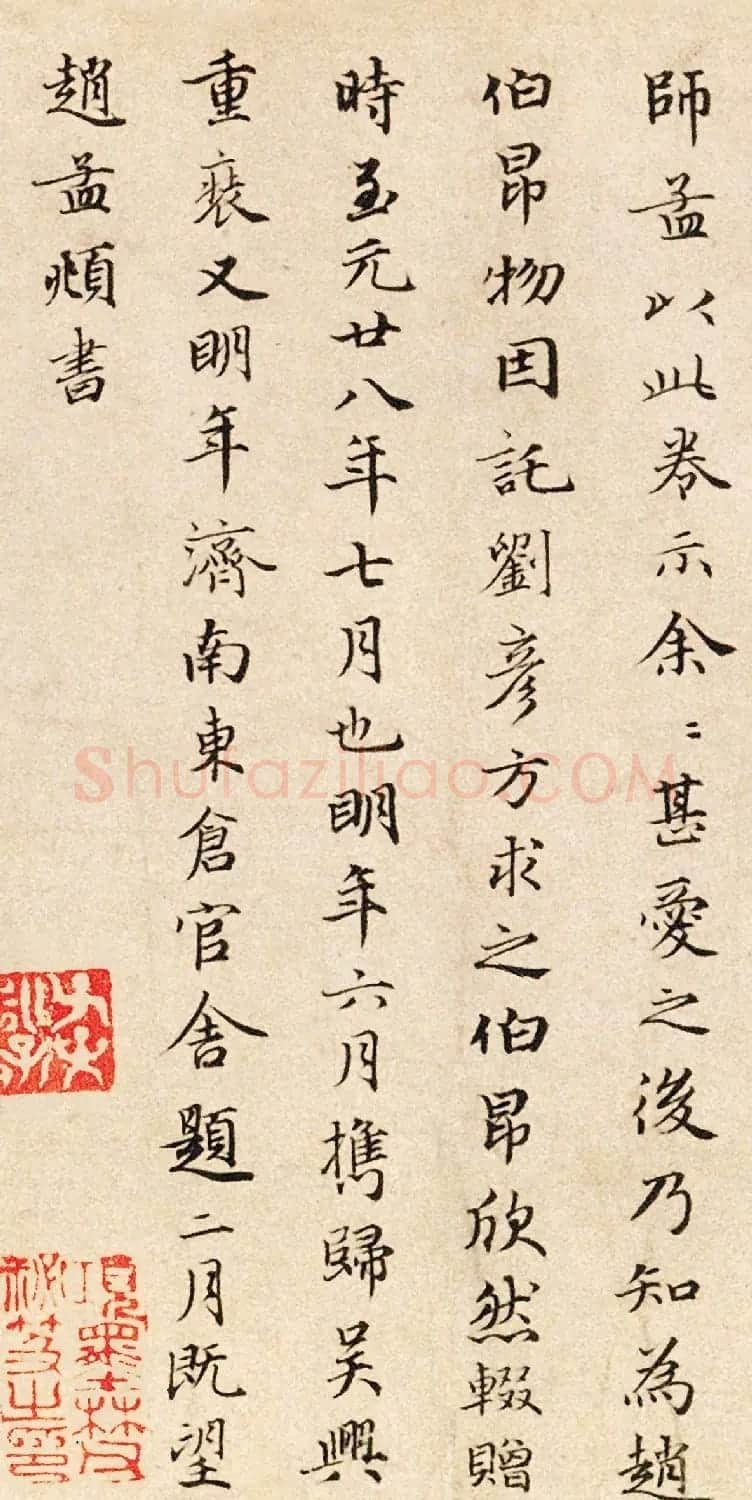 師孟以此卷示余〻甚愛之後乃知為趙
伯昂物因託劉彥方求之伯昂欣然輟贈
時至元廿八年七月也明年六月攜歸吳興
重裝又明年濟南東倉官舍題二月既望
趙孟頫書
項墨林父
秘笈之印
Shufaziliao.COM